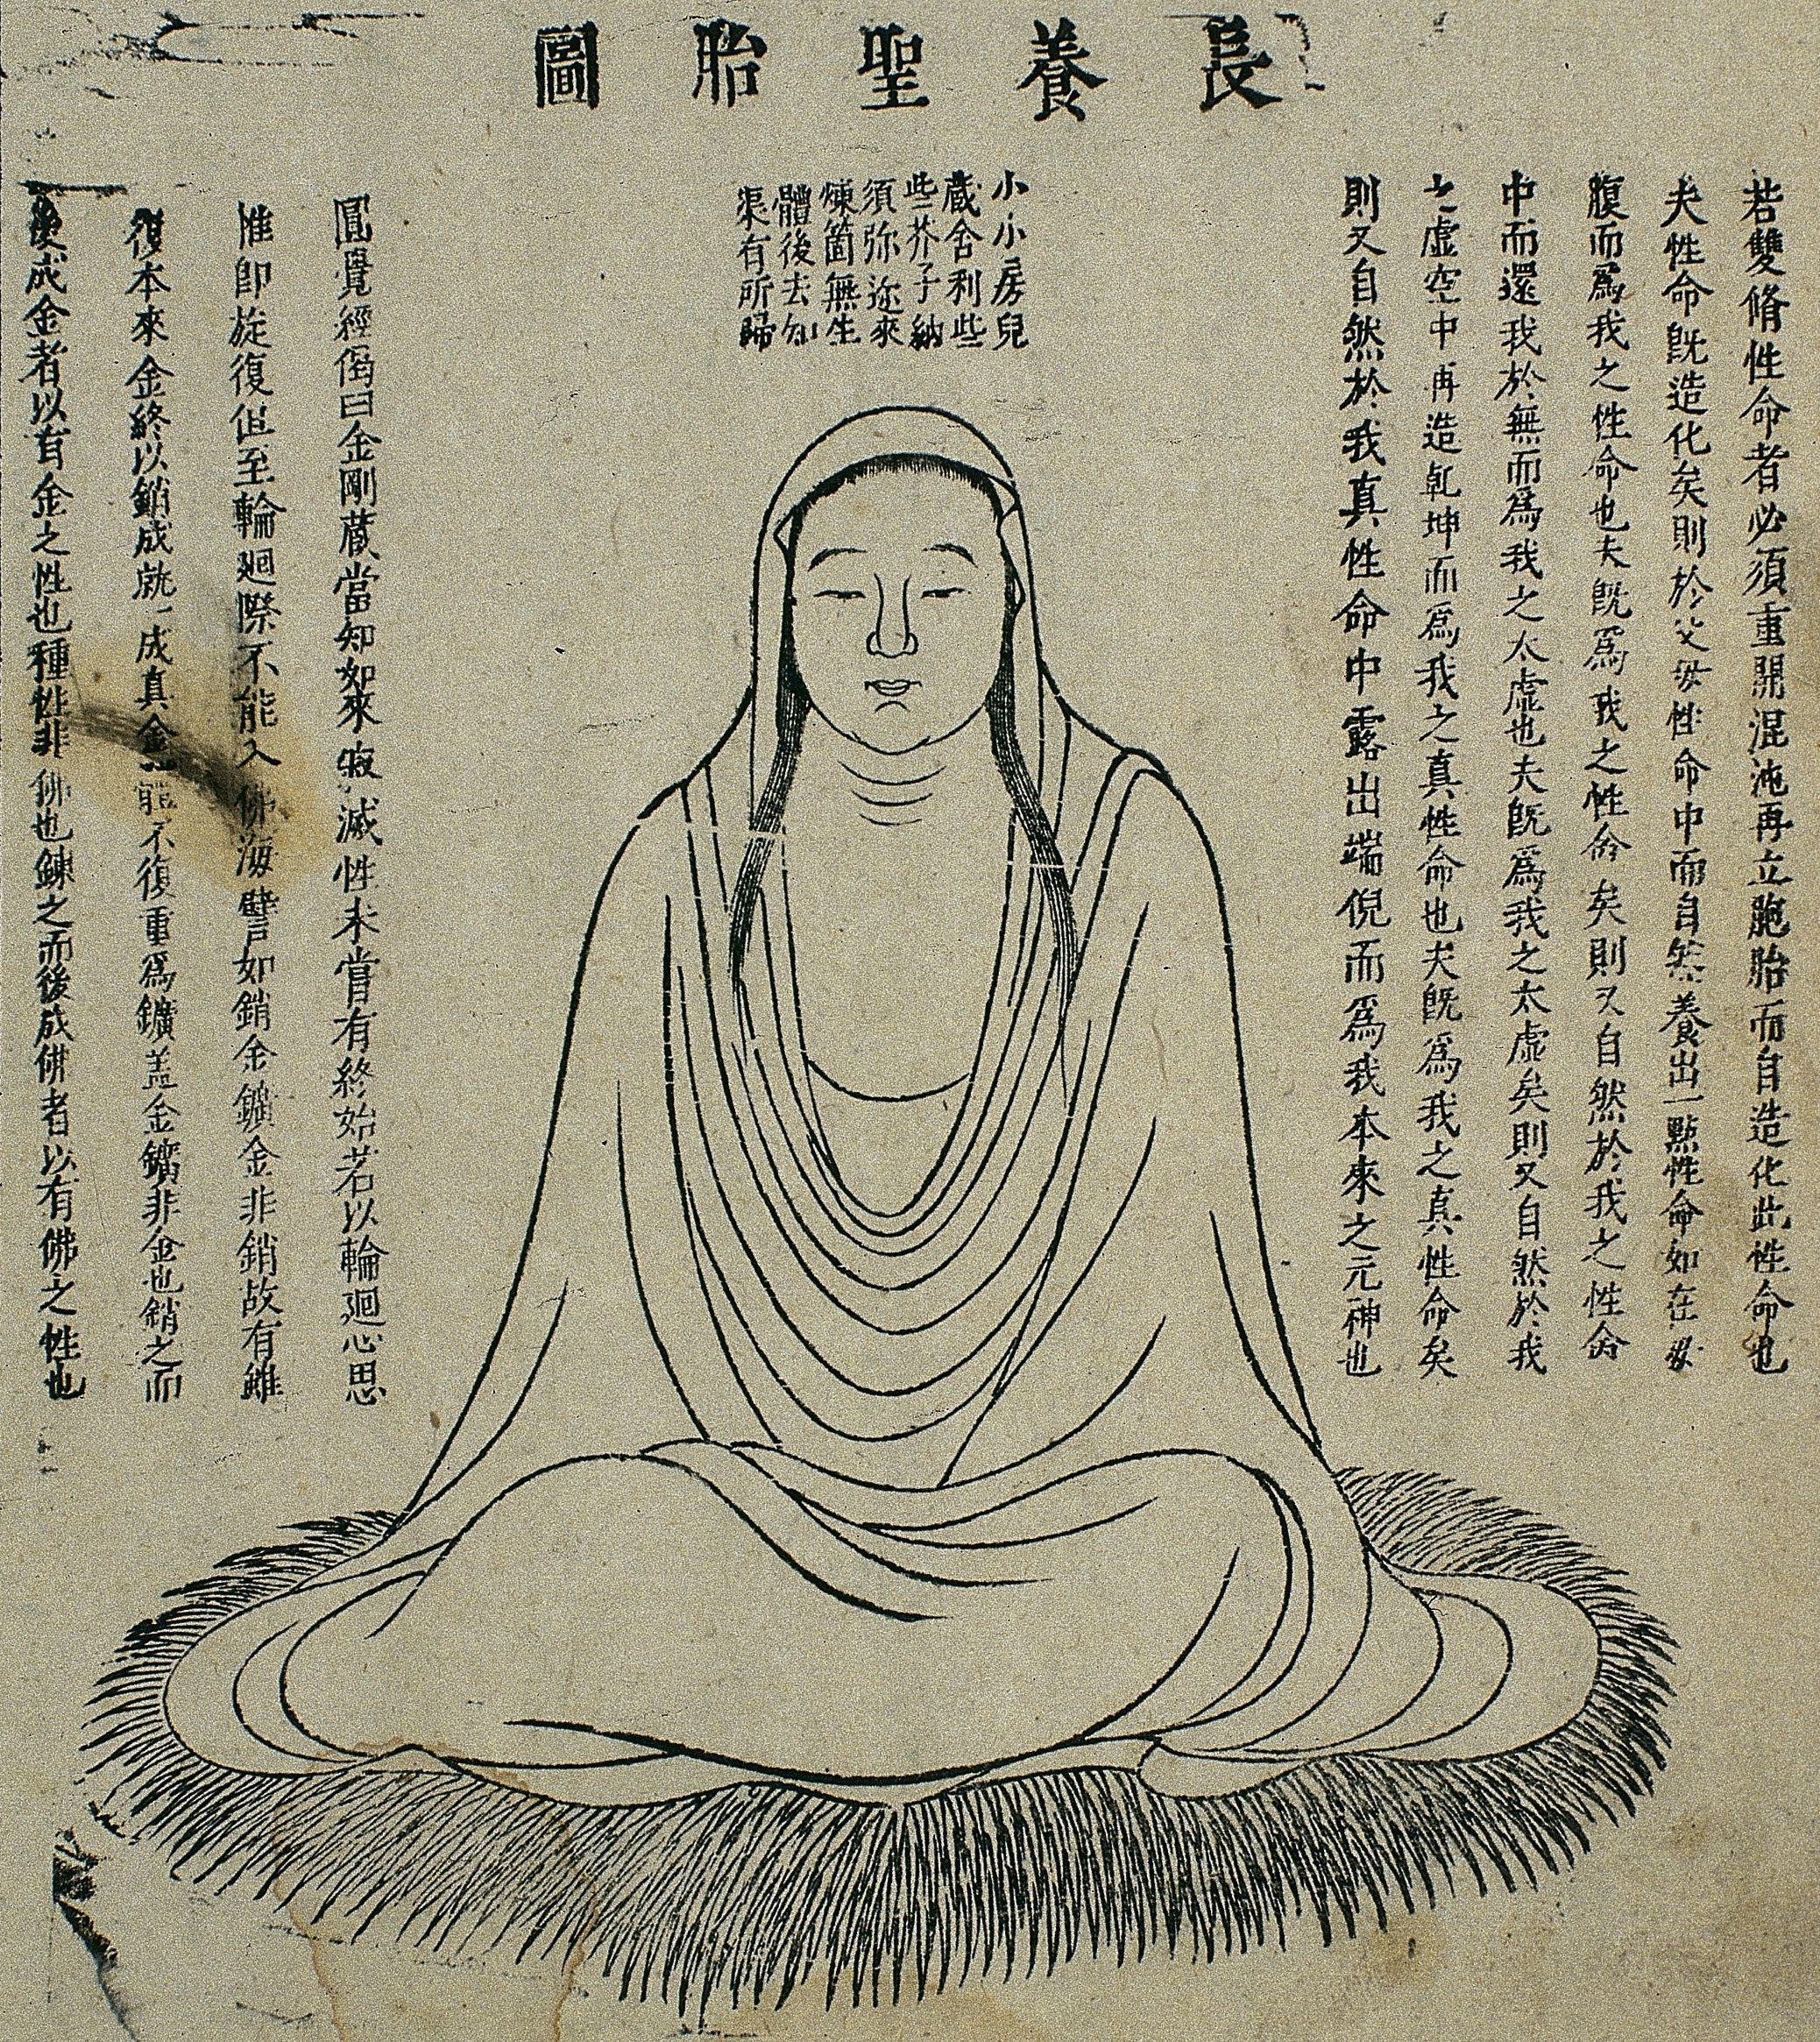 長養聖胎圖
若雙脩性命者必須重開混沌再立胞胎而自造化此性命也
夫性命旣造化矣則於父母性命中而自然養出一點性命如在母
腹而爲我之性命也夫旣爲我之性命矣則又自然於我之性命
中而還我於無而爲我之太虛也夫旣爲我之太虛矣則又自然於我
之虛空中再造乾坤而爲我之真性命也夫旣爲我之真性命矣
則又自然於我真性命中露出端倪而爲我本來之元神也
小小房兒
蔵舍利些
些芥子納
須弥迩來
煉箇無生
體後去知
渠有所歸
圓覺經偈曰金剛蔵當知如來寂滅性未嘗有終始若以輪廻心思
惟即旋復但至輪廻際不能入佛海譬如銷金鑛金非銷故有雖
復本來金終以銷成就一成真金體不復重爲鑛盖金鑛非金也銷之而
後成金者以有金之性也種性非佛也鍊之而後成佛者以有佛之性也